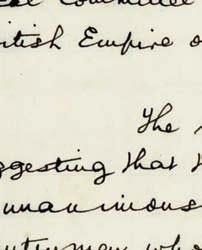 Committee
British Empire
The
suggesting that
unanimous